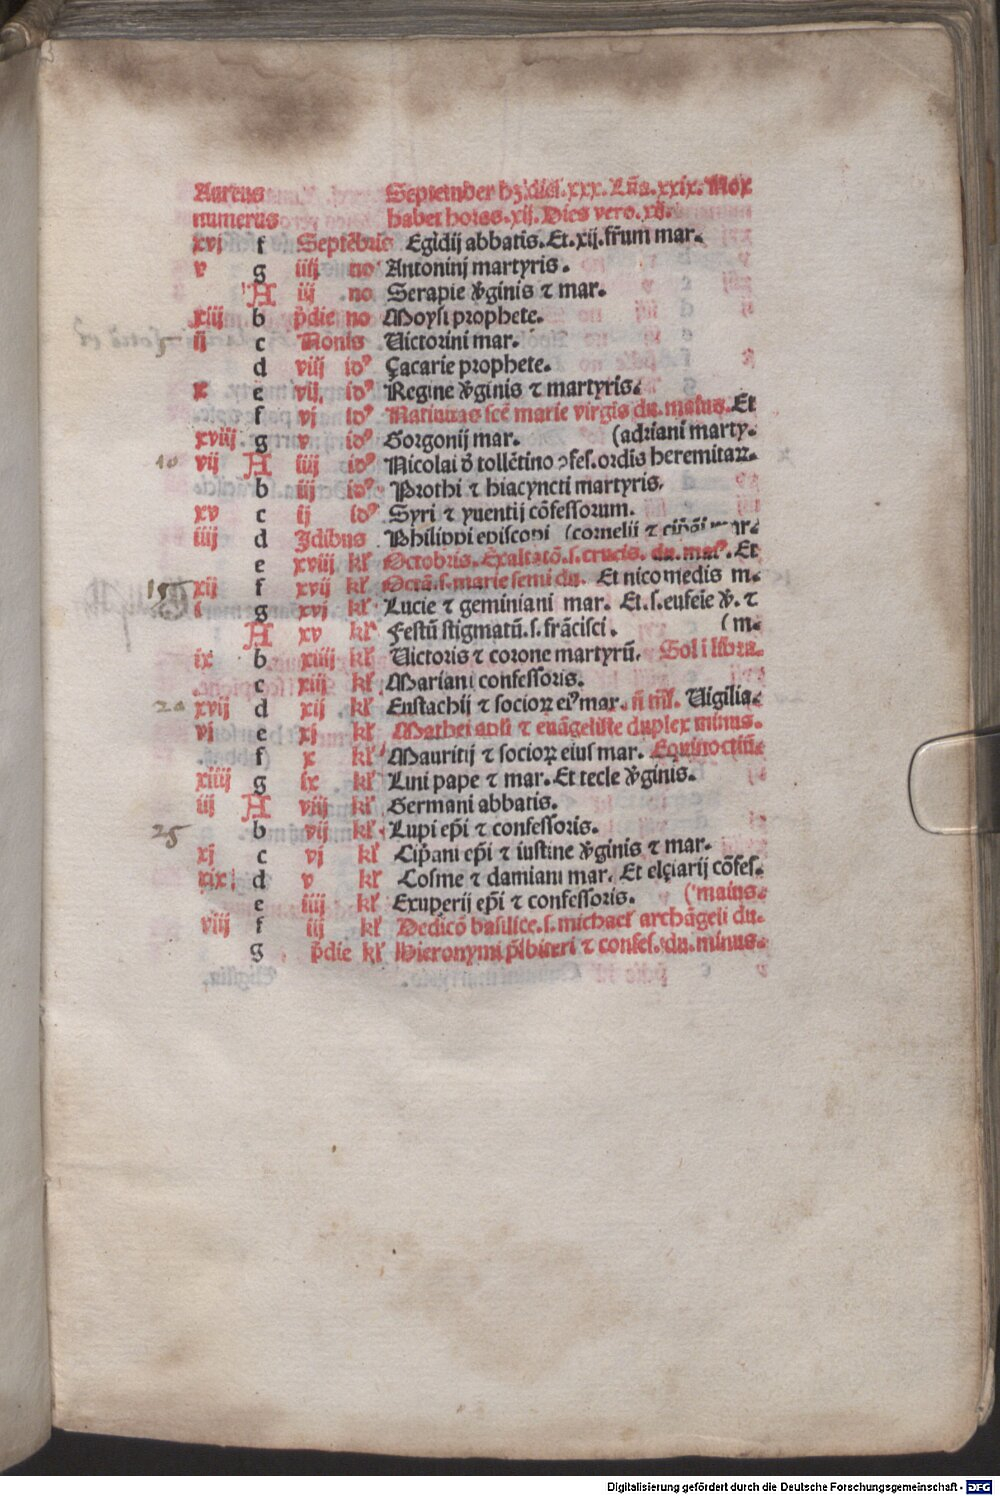 Aureus September hʒ. dies. xxx. Lūa. xxix. Nox
numerus habet horas. xij. Dies vero. xij.
xvj f Septēbris Egidij abbatis. Et. xij. fr̄um mar.
v g iiij no Antoninj martyris.
A iij no Serapie v̄ginis ⁊ mar.
xiij b p̄die no Moysi prophete.
ij c Nonis Victorini mar. 5
d viij idꝰ Çacarie prophete.
x e vij. idꝰ Regine v̄ginis ⁊ martyris.
f vj idꝰ Natiuitas scē marie virgis du. maius. Et
xviij g v idꝰ Gorgonij mar. (adriani marty.
10 vij A iiij idꝰ Nicolai d̄ tollētino ↄfes. ordis heremitaꝝ.
b iij idꝰ Prothi ⁊ hiacyncti martyris.
xv c ij idꝰ Syri ⁊ yuentij cōfessorum.
iiij d Jdibus Philippi episcopi (cornelii ⁊ cip̄āi mar.
e xviij kl̄ Octobris. Exaltatō. s. crucis. du. maꝰ. Et
15 xij f xvij kl̄ Octā. s. marie semi du. Et nicomedis m.
i g xvj kl̄ Lucie ⁊ geminiani mar. Et. s. eufeīe v̄. ⁊
A xv kl̄ Festū stigmatū. s. frācisci. (m.
ix b xiiij kl̄ Victoris ⁊ corone martyrū. Sol i libra.
c xiij kl̄ Mariani confessoris.
20 xvij d xij kl̄ Eustachij ⁊ socioꝝ eiꝰ mar. Vigilia.
vj e xj kl̄ Mathei apl̄i ⁊ euāgeliste duplex minus.
f x kl̄ Mauritij ⁊ socioꝝ eius mar. Equinoctiū.
xiiij g ix kl̄ Lini pape ⁊ mar. Et tecle v̄ginis.
iij A viij kl̄ Germani abbatis.
25 b vij kl̄ Lupi ep̄i ⁊ confessoris.
xj c vj kl̄ Cip̄ani ep̄i ⁊ iustine v̄ginis ⁊ mar.
xix d v kl̄ Cosme ⁊ damiani mar. Et elçiarij cōfes.
e iiij kl̄ Exuperij ep̄i ⁊ confessoris. (maius.
viij f iij kl̄ Dedicō basilice. s. michael̄ archāgeli du.
g p̄die kl̄ Hieronymi p̄lbiteri ⁊ confes. du. minus.
Digitalisierung gefördert durch die Deutsche Forschungsgemeinschaft - DFG